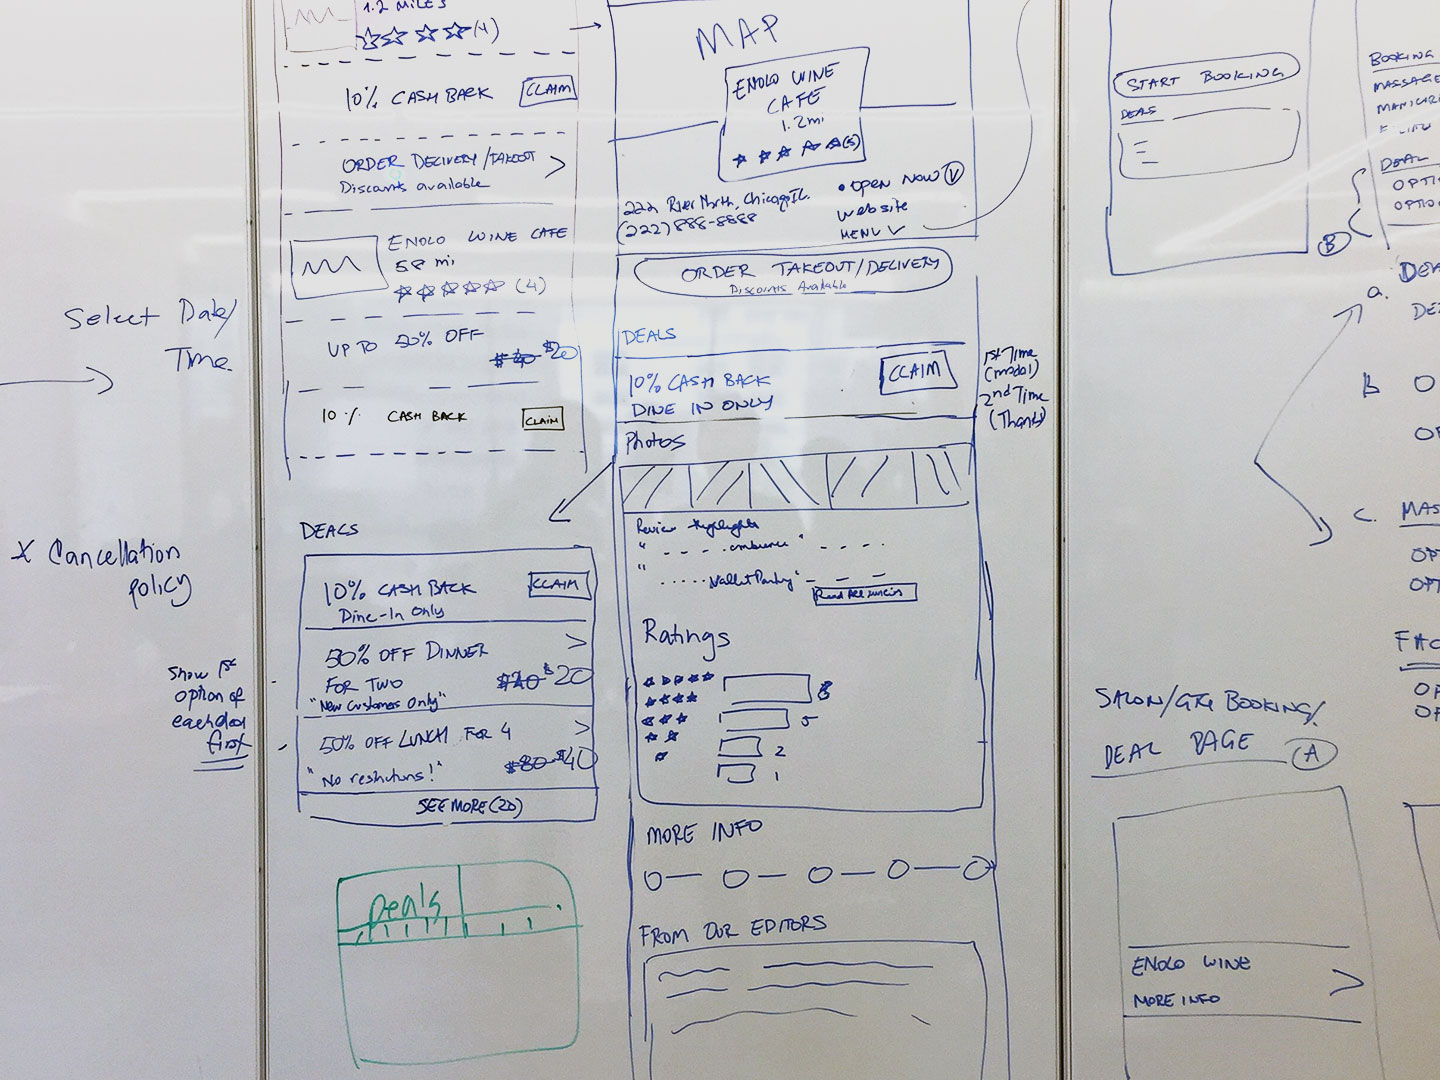 Select Date/
Time.
X Cancellation
policy
Show 1st
option of
each deal
first
1.2 MILES
(4)
10% CASH BACK CLAIM
ORDER DELIVERY/TAKEOUT >
Discounts available
ENOLO WINE CAFE
58 mi
(4)
UP TO 50% OFF
$40 $20
10% CASH BACK CLAIM
DEALS
10% CASH BACK CLAIM
Dine-In Only
50% OFF DINNER >
FOR TWO $40 $20
"New Customers Only"
50% OFF LUNCH FOR 4 >
"No restrictions!" $80 $40
SEE MORE (20)
Deals
MAP
ENOLO WINE
CAFE
1.2mi
(5)
222 River North, Chicago IL.
(222) 888-8888
• OPEN NOW V
Website
MENU V
ORDER TAKEOUT/DELIVERY
Discounts Available
DEALS
10% CASH BACK CLAIM
DINE IN ONLY
1st Time
(modal)
2nd Time
(Thanks)
Photos
Review Highlights
" - - - ambience " - - -
Read All reviews
Ratings
8
5
2
1
MORE INFO
FROM OUR EDITORS
START BOOKING
DEALS
B
BOOKING
MASSAGE
DEAL
a.
B O
C. MAS
SALON/ BOOKING/
DEAL PAGE A
ENOLO WINE >
MORE INFO